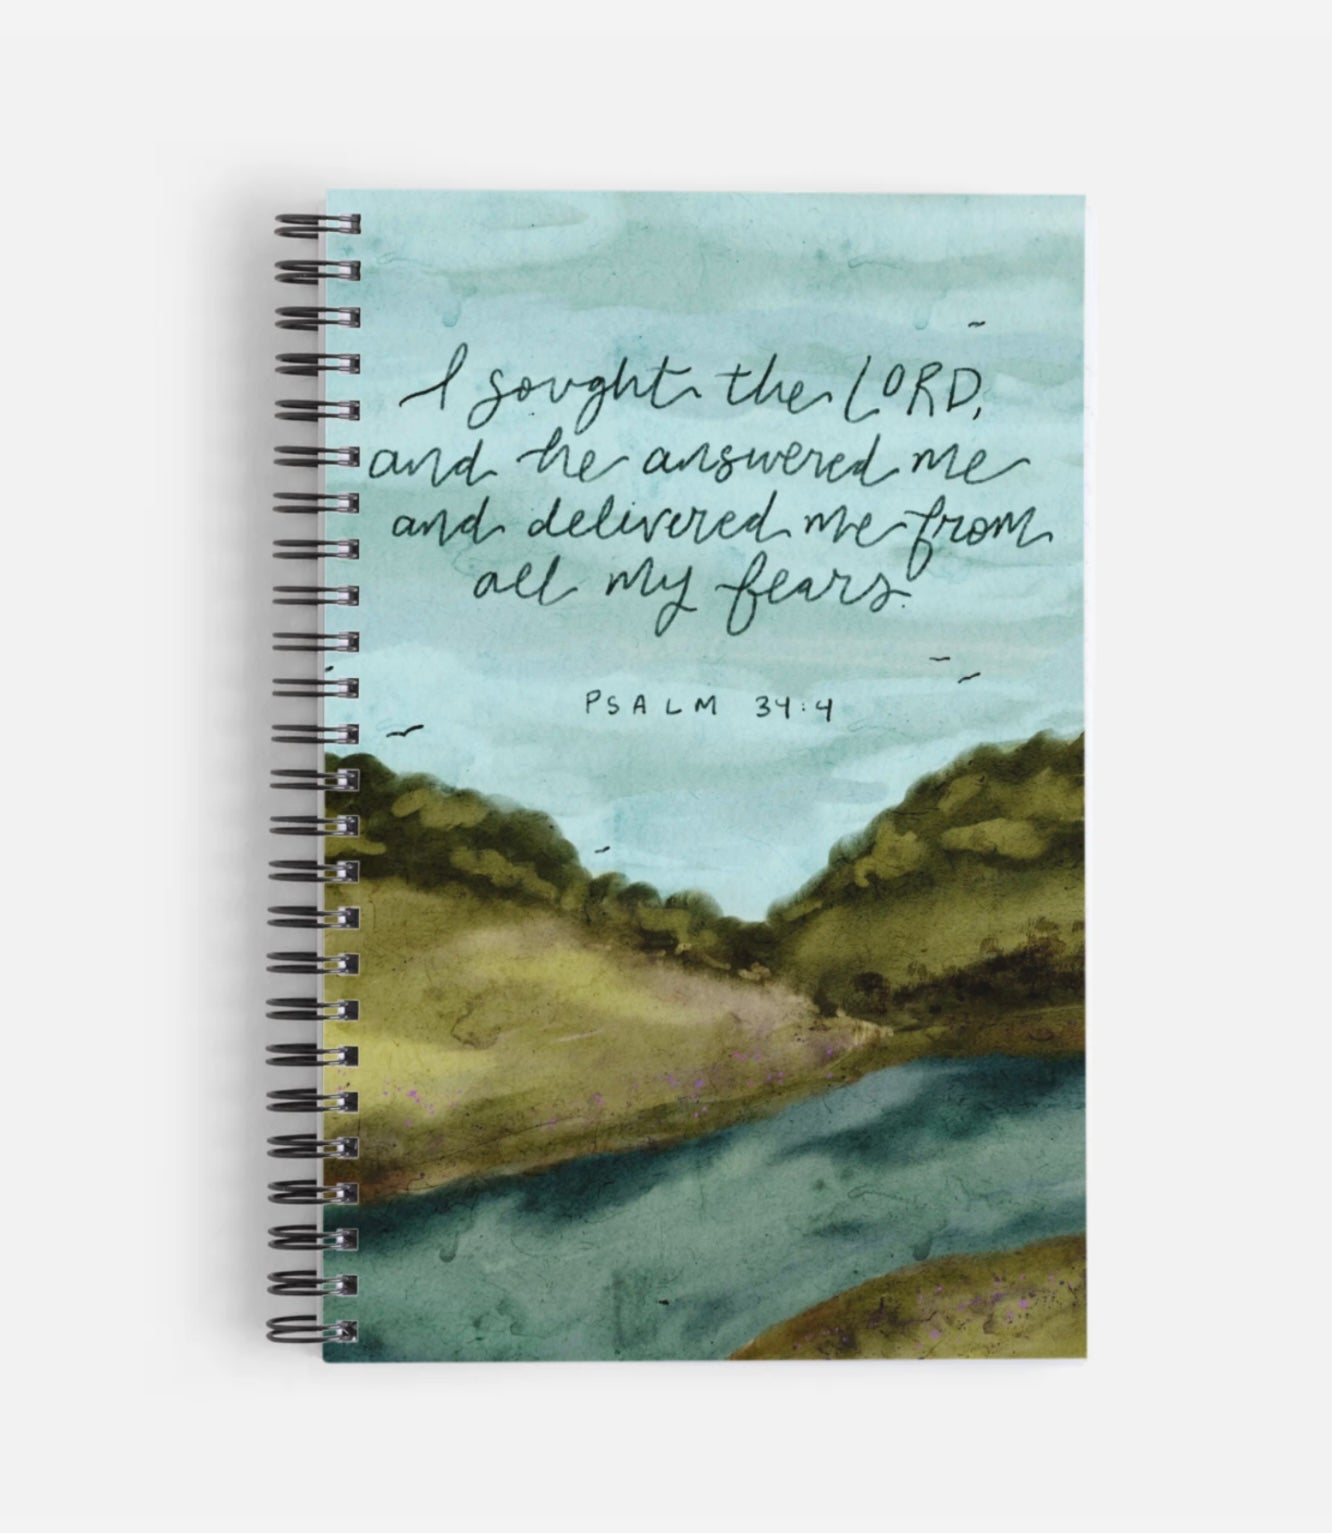 I sought the LORD,
and he answered me
and delivered me from
all my fears.
PSALM 34:4